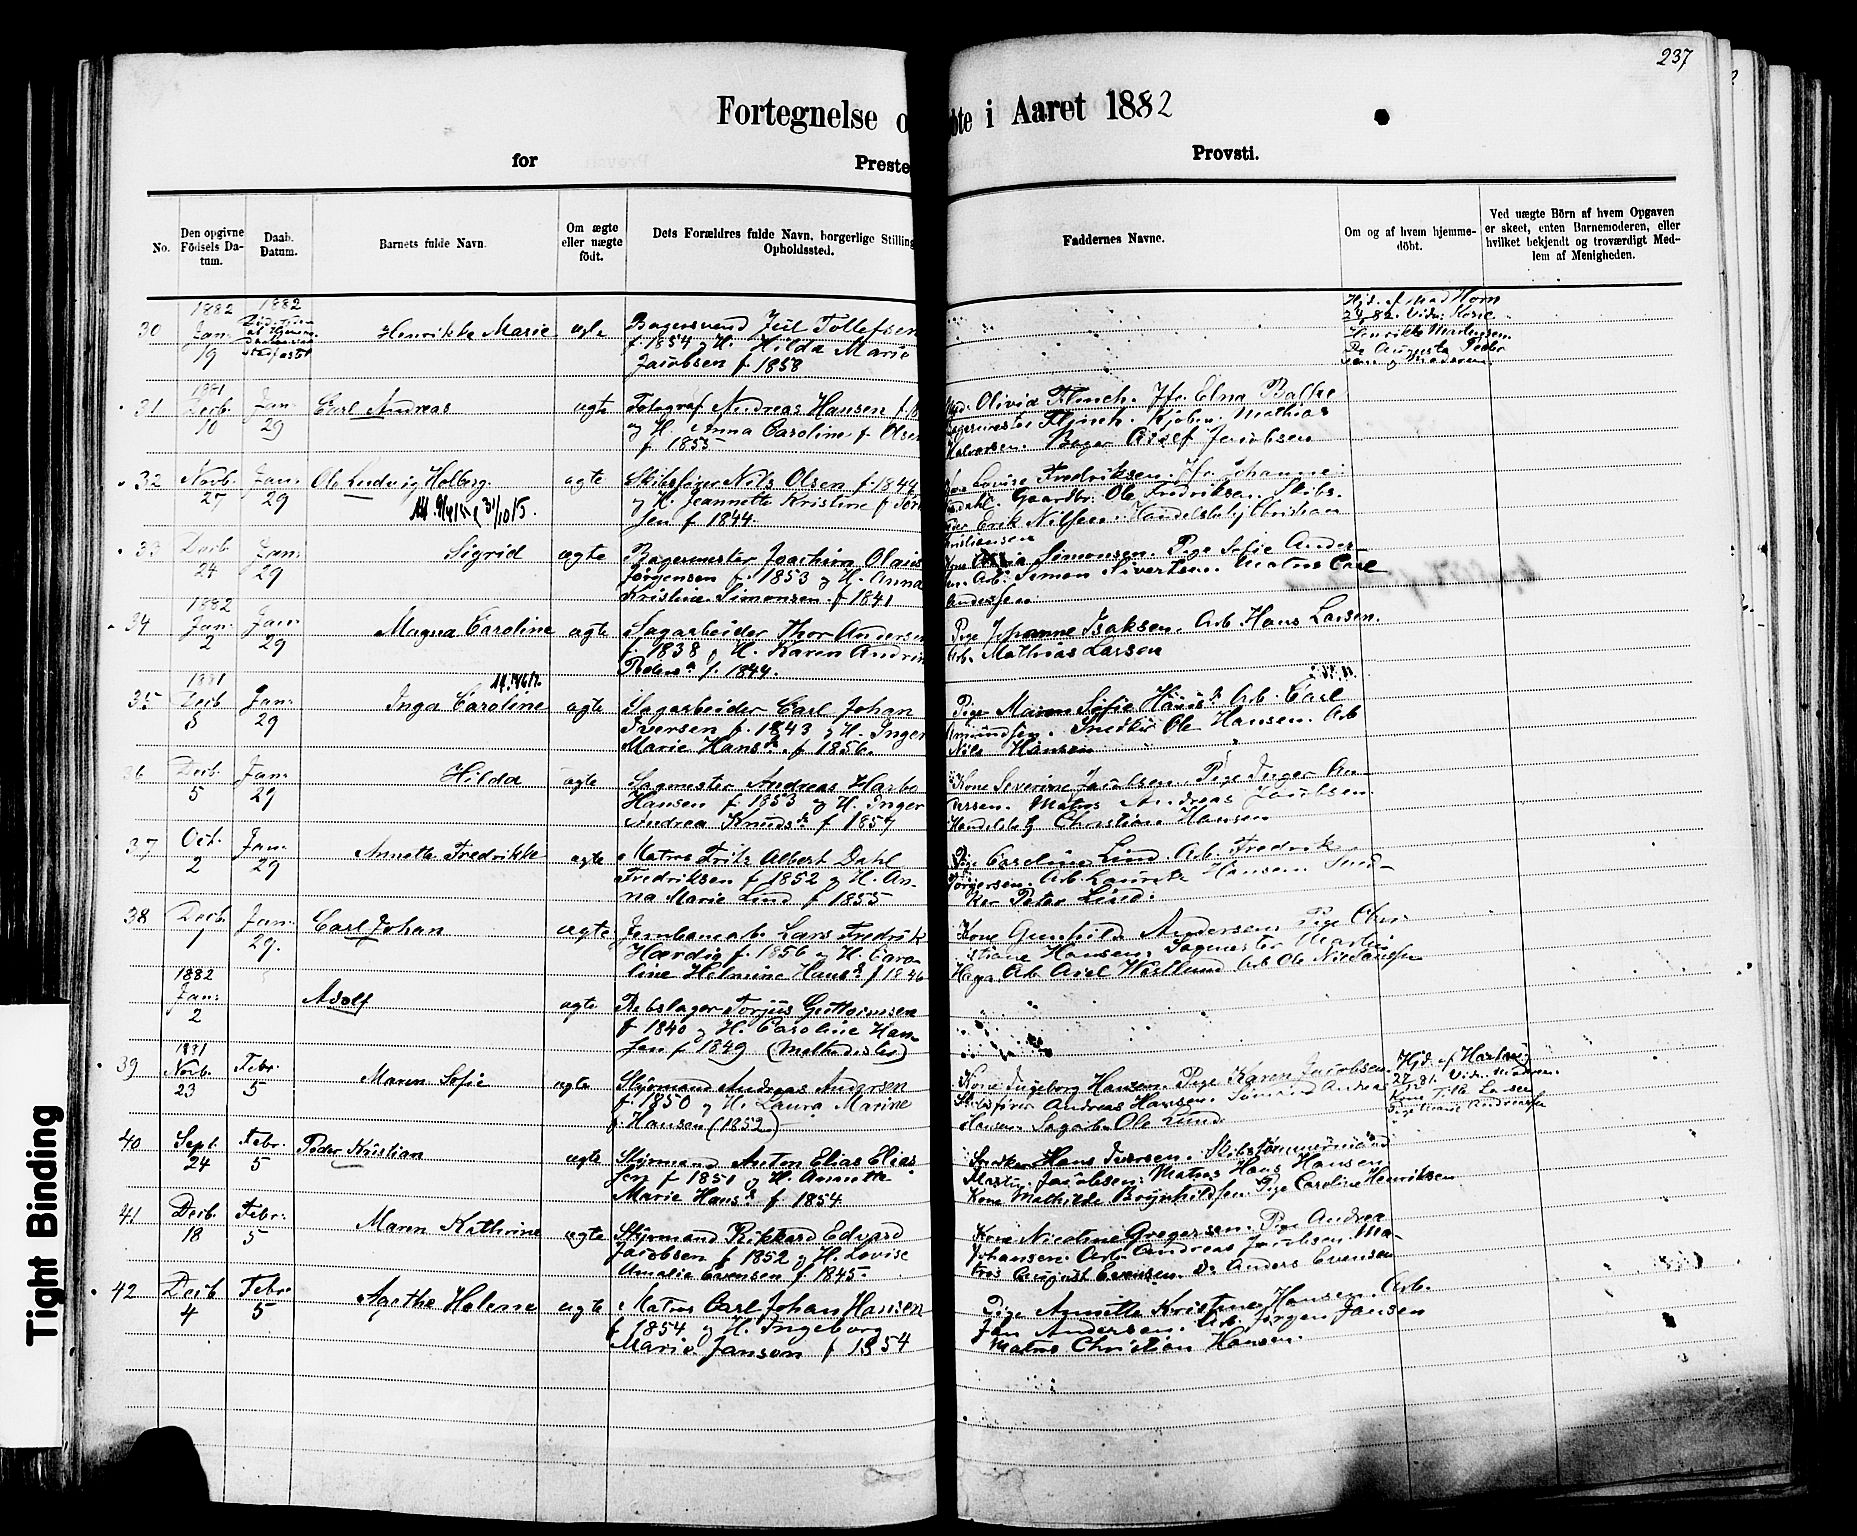 237
Fortegnelse o
bte i Aaret 1882
for
Preste
Provsti.
No.
Den opgivne Födsels Da- tum.
Daab. Datum.
Barnets fulde Navn.
Om ægte eller uægte födt.
Dets Forældres fulde Navn, borgerlige Stilling
Opholdssted.
Faddernes Navne.
Om og af hvem hjemme-
döbt.
Ved uægte Börn af hvem Opgaven
er skeet, enten Barnemoderen, eller
hvilket bekjendt og troværdigt Med-
lem af Menigheden.
30 1882 Jan. 19 1882 Henrikke Marie ægte Bagersvend Juul Tollefsen
f 1854 og H. Hilda Marie
Jacobsen f. 1858
31 1881 Decb. 10 Jan. 29 Carl Andreas ægte Fotograf Andreas Hansen f.
og H. Anna Caroline f Olsen
f 1855
Olivia Flinch. Jfr. Elna
Flinch. Kjøbm. Mathias
Halvorsen. Bager Adolf Jacobsen
32 Novb. 27 Jan. 29 Ole Ludvig Holberg. ægte Skibsfører Nils Olsen f. 1844
og H. Jeannette Kristine f
sen f 1844.
Lovise Fredriksen. Jfr. Johanne
Gaardbr. Ole Fredriksen. Skibs-
Erik Nilsen. Handelsbetj Christian
Kristiansen
33 Decb. 24 Jan. 29 Sigrid ægte Bagermester Joachim Olaus
Jørgensen f. 1853 og H. Anna
Kristine Simonsen f 1841
Simonsen. Pige Sofie Ander-
sen. Arb. Simon Sivertsen. Matros Carl
Andersen
34 1882 Jan. 2 Jan. 29 Magna Caroline ægte Sagarbeider Thor Andersen
f. 1838 og H. Karen Andrine
f. 1844.
Pige Johanne Isaksen. Arb. Hans Larsen.
Arb. Mathias Larsen
35 1881 Decb. 5 Jan. 29 Inga Caroline ægte Sagarbeider Carl Johan
Iversen f. 1843 og H. Inger
Marie Hansd. f 1856.
Pige Maren Sofie Hansd. Arb. Carl
Amundsen. Snedker Ole Hansen. Arb
Nils Hansen
36 Decb. 5 Jan. 29 Hilda ægte Sagmester Andreas Harbo
Hansen f. 1853 og H. Inger
Andrea Knudsd. f 1857
Kone Severine Jacobsen. Pige Inger An-
dersen. Matros Andreas Jacobsen.
Handelsbetj Christian Hansen
37 Oct. 2 Jan. 29 Annette Fredrikke ægte Matros Fritz Albert Dahl
Fredriksen f 1852 og H. An-
na Marie Lund f 1855
Pige Caroline Lind. Arb. Fredrik
Jørgersen. Arb. Lauritz Hansen. Sned-
ker Peter Lind.
38 Decb. 1 Jan. 29. Carl Johan ægte Jernbanearb. Lars Fredrik
Hærdig f. 1856 og H. Caro-
line Helmine Hansd. f 1846
Kone Gunhild Andersen. Pige Chri-
stiane Hansen. Sagmester Martin
Hagen. Arb. Axel Westlund. Arb. Ole Nicolaisen
1882 Jan. 2 Adolf ægte Rebslager Torjus Guttormsen
f 1840 og H. Caroline Han-
sen f 1849 (Methodister)
39 1881 Novb. 23 Febr. 5 Maren Sofie ægte Styrmand Andreas Andersen
f. 1850 og H. Laura Marine
f. Hansen (1852)
Kone Ingeborg Hansen. Pige Karen Jacobsen.
Skibsfører Andreas Hansen. Sømand Andrea
Hansen. Sagarb. Ole Lund
40 Sept. 24 Febr. 5 Peder Kristian ægte Styrmand Anton Elias Elias-
sen f 1851 og H. Annette
Marie Hansd. f. 1854
Snedker Hans Iversen. Skibstømmermand
Martin Jacobsen. Matros Hans Hansen
Kone Mathilde Brynhildsen. Pige Caroline Henriksen
41 Decb. 18 Febr. 5 Maren Kathrine ægte Styrmand Rikkard Edvard
Jacobsen f 1852 og H. Lovise
Amalie Evensen f. 1845.
Kone Nicoline Gregersen. Pige Andrea
Johansen. Arb. Andreas Jacobsen. Ma-
tros August Evensen. Do Anders Evensen
42 Decb. 4 Febr. 5 Agethe Helene ægte Matros Carl Johan Hansen
f 1854 og H. Ingeborg
Marie Jansen f 1854
Pige Annette Kristine Hansen. Arb.
Jan Andersen. Arb. Jørgen Jansen
Matros Christian Hansen.
Tight Binding